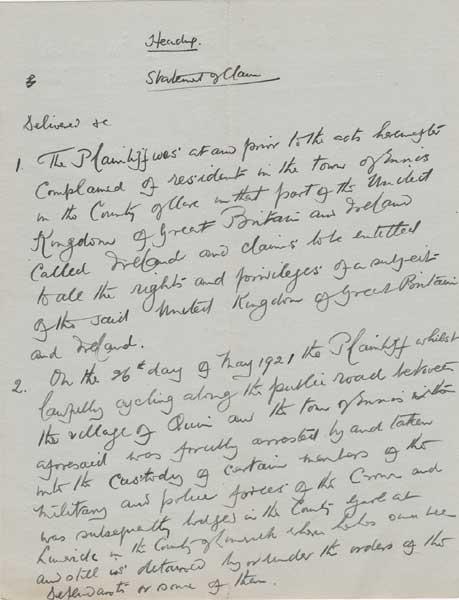 Heading.
Statement of Claim
Delivered &c
1. The Plaintiff was at and prior to the acts hereinafter
complained of resident in the town of Ennis
in the County of Clare in that part of the United
Kingdom of Great Britain and Ireland
called Ireland and claims to be entitled
to all the rights and privileges of a subject
of the said United Kingdom of Great Britain
and Ireland.
2. On the 26th day of May 1921 the Plaintiff whilst
lawfully cycling along the public road between
the village of Quin and the town of Ennis
aforesaid was forcibly arrested by and taken
into the custody of certain members of the
military and police forces of the Crown and
was subsequently lodged in the County Gaol at
Limerick in the County of Limerick where he has since been
and still is detained by or under the orders of the
Defendants or some of them.